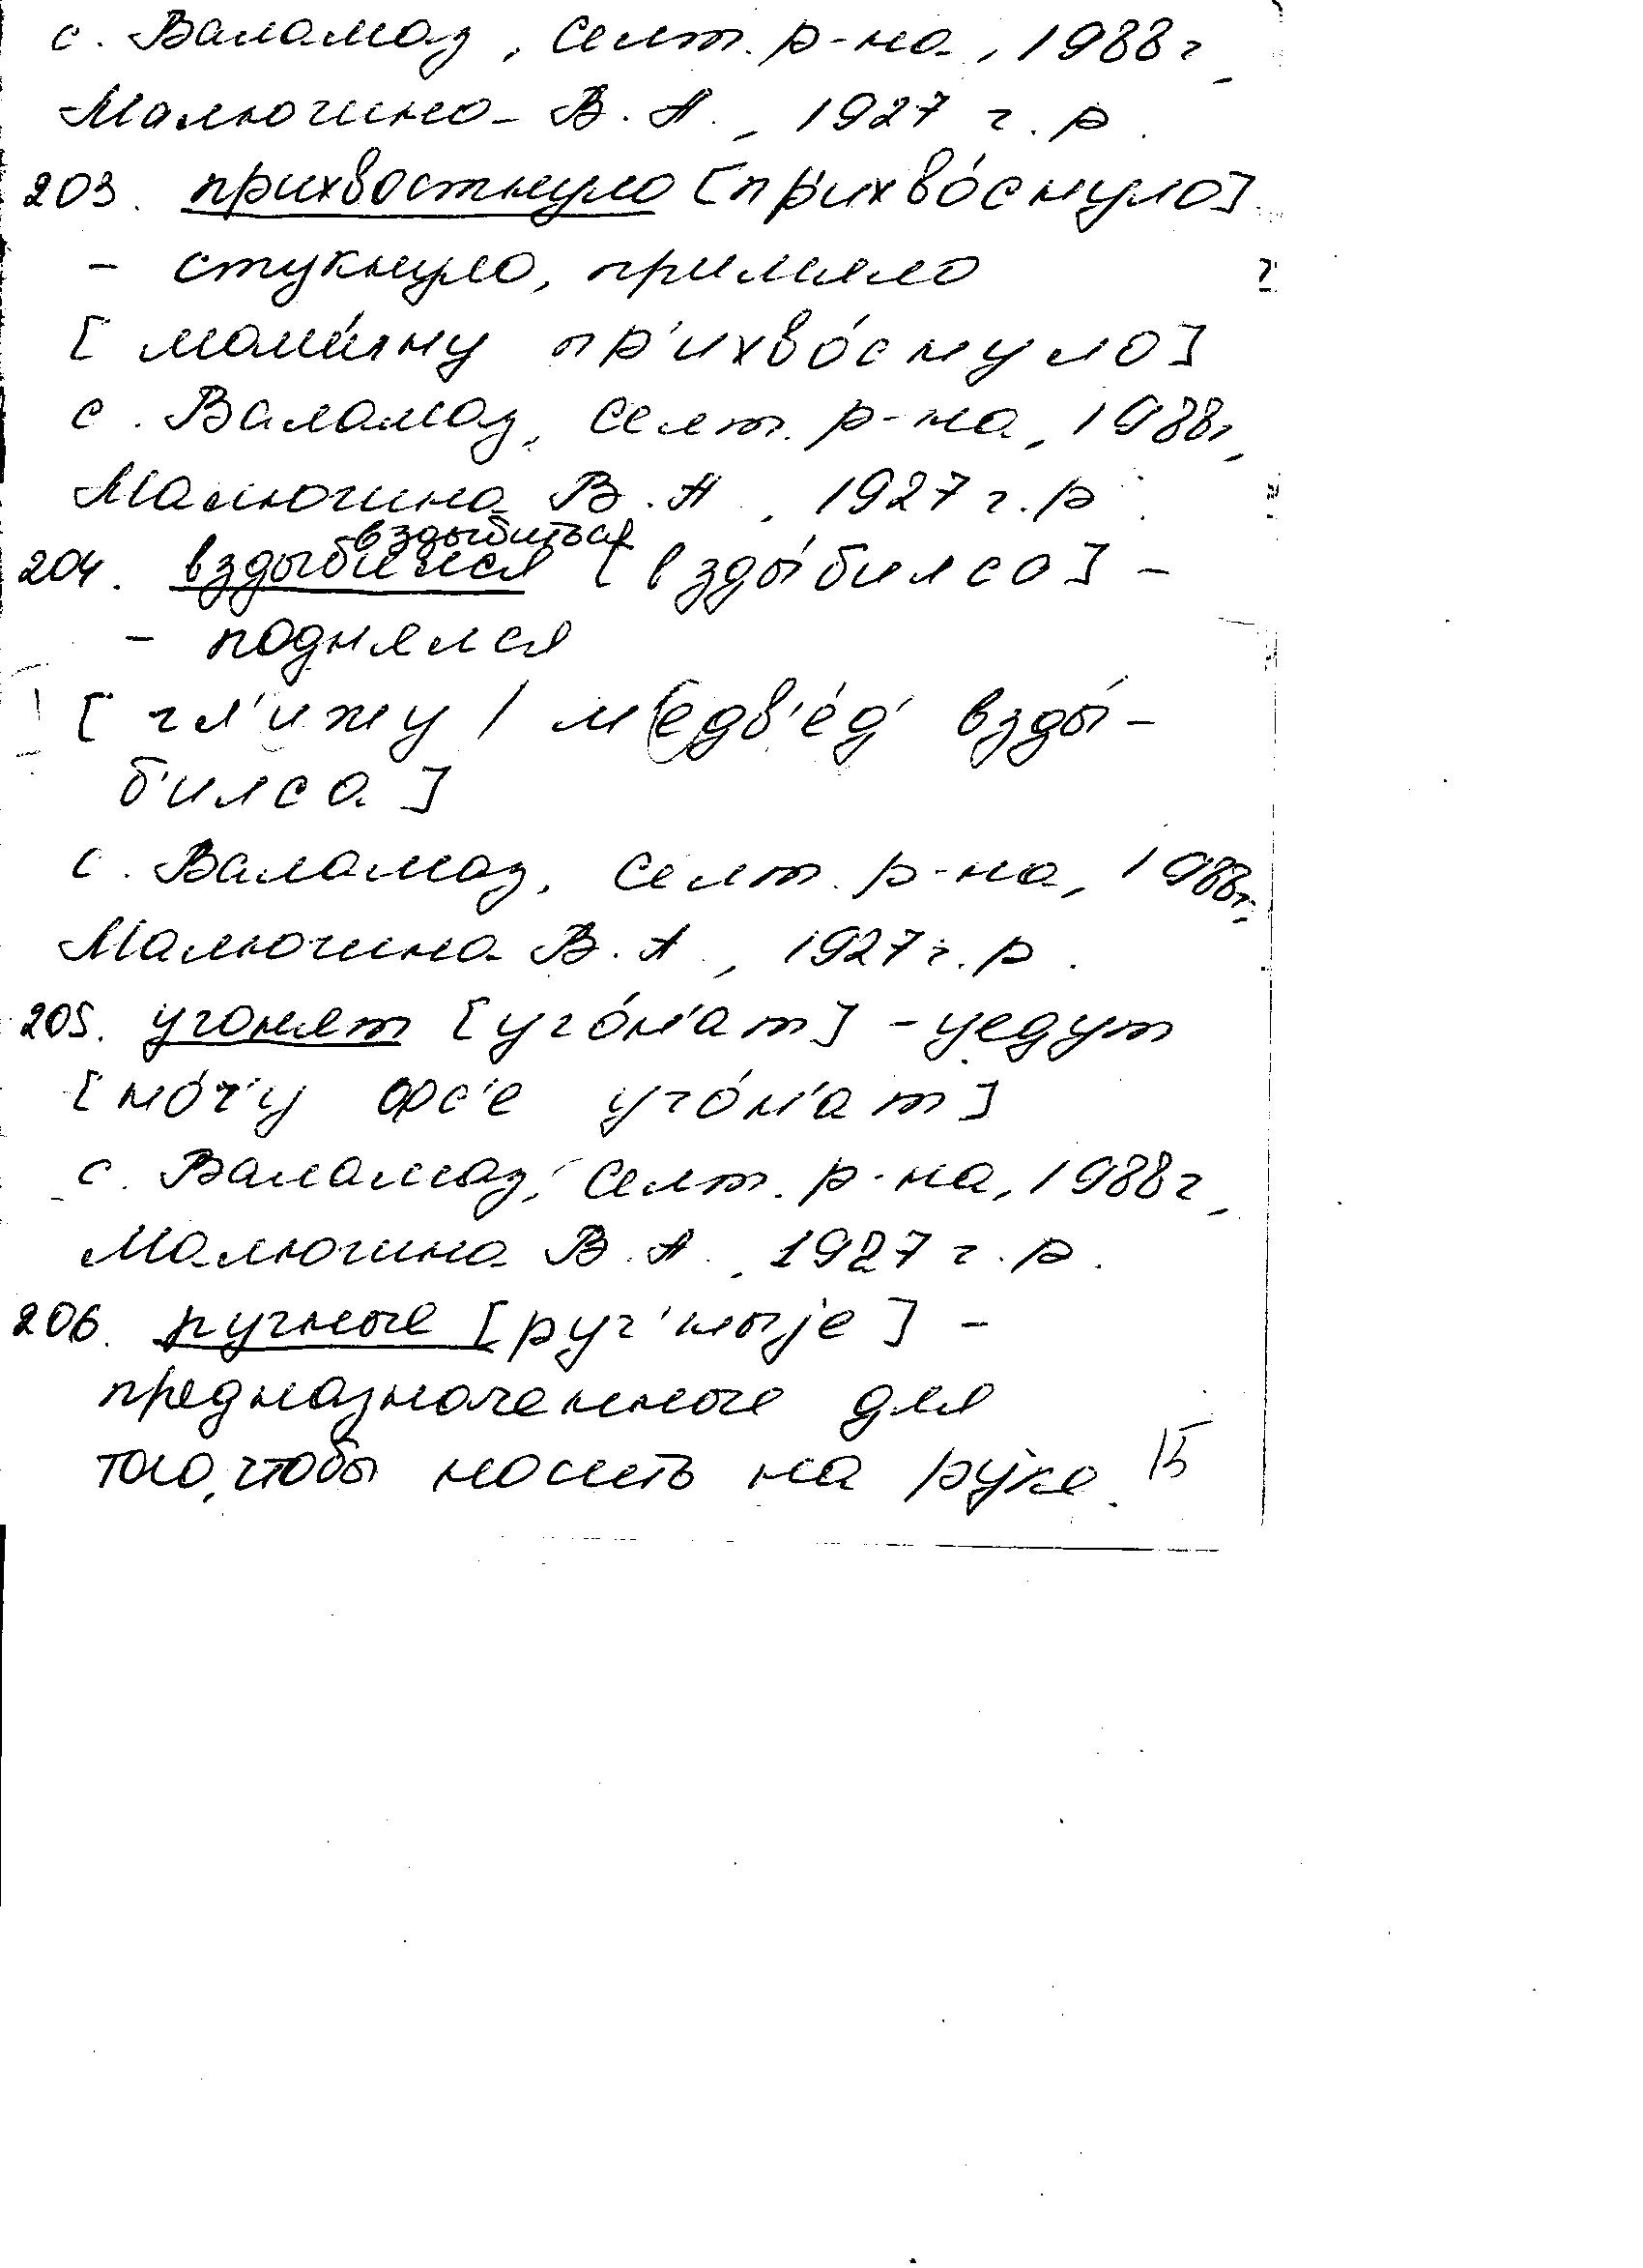 с. Валамаз, Селт. р-на, 1988 г,
Малючина В. А., 1927 г. р.
203. прихвостнуло [пр'ихво́снуло]
- стукнуло, примяло
[ ма́шину пр'ихво́снуло]
с. Валамаз, Селт. р-на, 1988г,
Малючина В. А., 1927 г. р.
вздыбиться
204. вздыбился [взды́билса] -
- поднялся
[ гл'ижу / медв'е́д' взды́-
б'илса ]
с. Валамаз, Селт. р-на, 1988г,
Малючина В. А., 1927 г. р.
205. угонят [уго́н'ат] - уедут
[но́ч'у фс'е уго́н'ат]
с. Валамаз, Селт. р-на, 1988 г,
Малючина В. А., 1927 г. р.
206. ручные [руч'ныjе] -
предназначенные для
того, чтобы носить на руке. 15